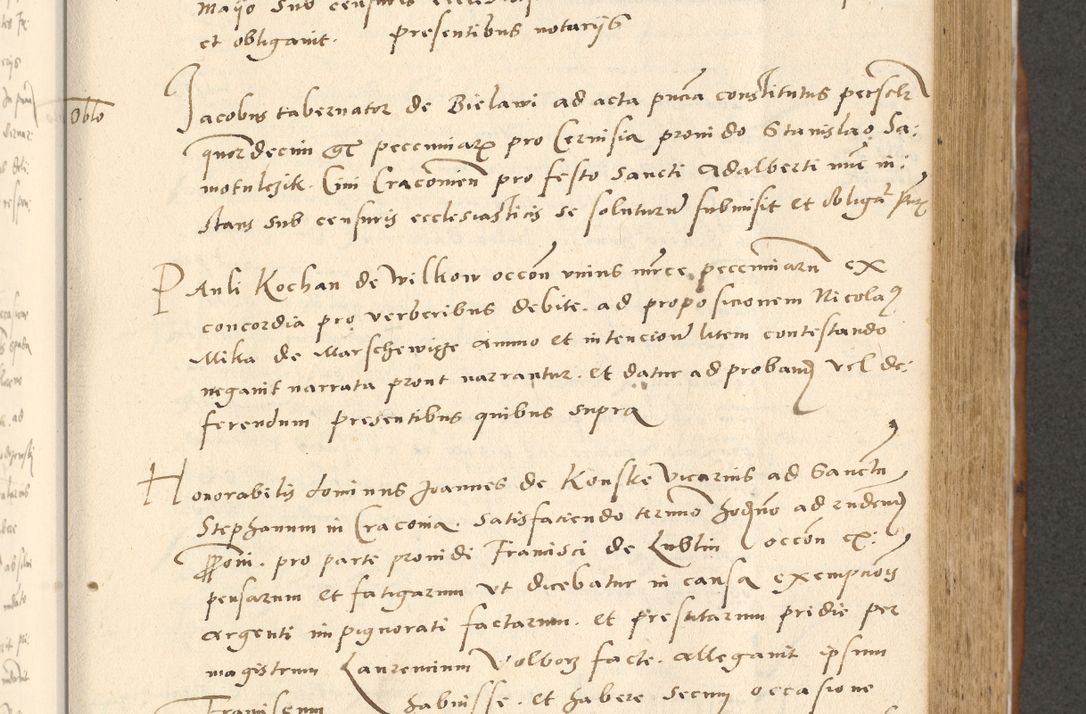 Mayo sub censuris
et obligavit. presentibus notariis
Oblo
Jacobus tabernator de Bielawi ad acta pncia constitutus personlr
quordecim gr pecuniarum pro Cervisia provido Stanislao Sa:
motulczik. Civi Cracovien pro festo Sancti Adalberti nunc in:
stans sub censuris ecclesiasticis se soluturum submisit et obligat pntibus
Pauli Kochan de Wilkow occon unius mrce pecuniarum ex
concordia pro verberibus debite. ad propositionem Nicolai
Mika de Marschewicze animo et intencione litem contestando
negavit narrata prout narrantur. et datur ad proband vel de:
ferendum presentibus quibus supra
Honorabilis dominus Joannes de Konske Vicarius ad Sanctum
Stephanum in Cracovia. satisfaciendo termino hodierno ad rndendum
pponi. pro parte providi Francisci de Lublin occon ex:
pensarum et fatigarum ut dicebatur in causa exempcionis
argenti impignorati factarum. et prestitarum pridie per
magistrum Laurencium Volborz facte. allegavit ipsum
Franiscum habuisse. et habere secum occasione